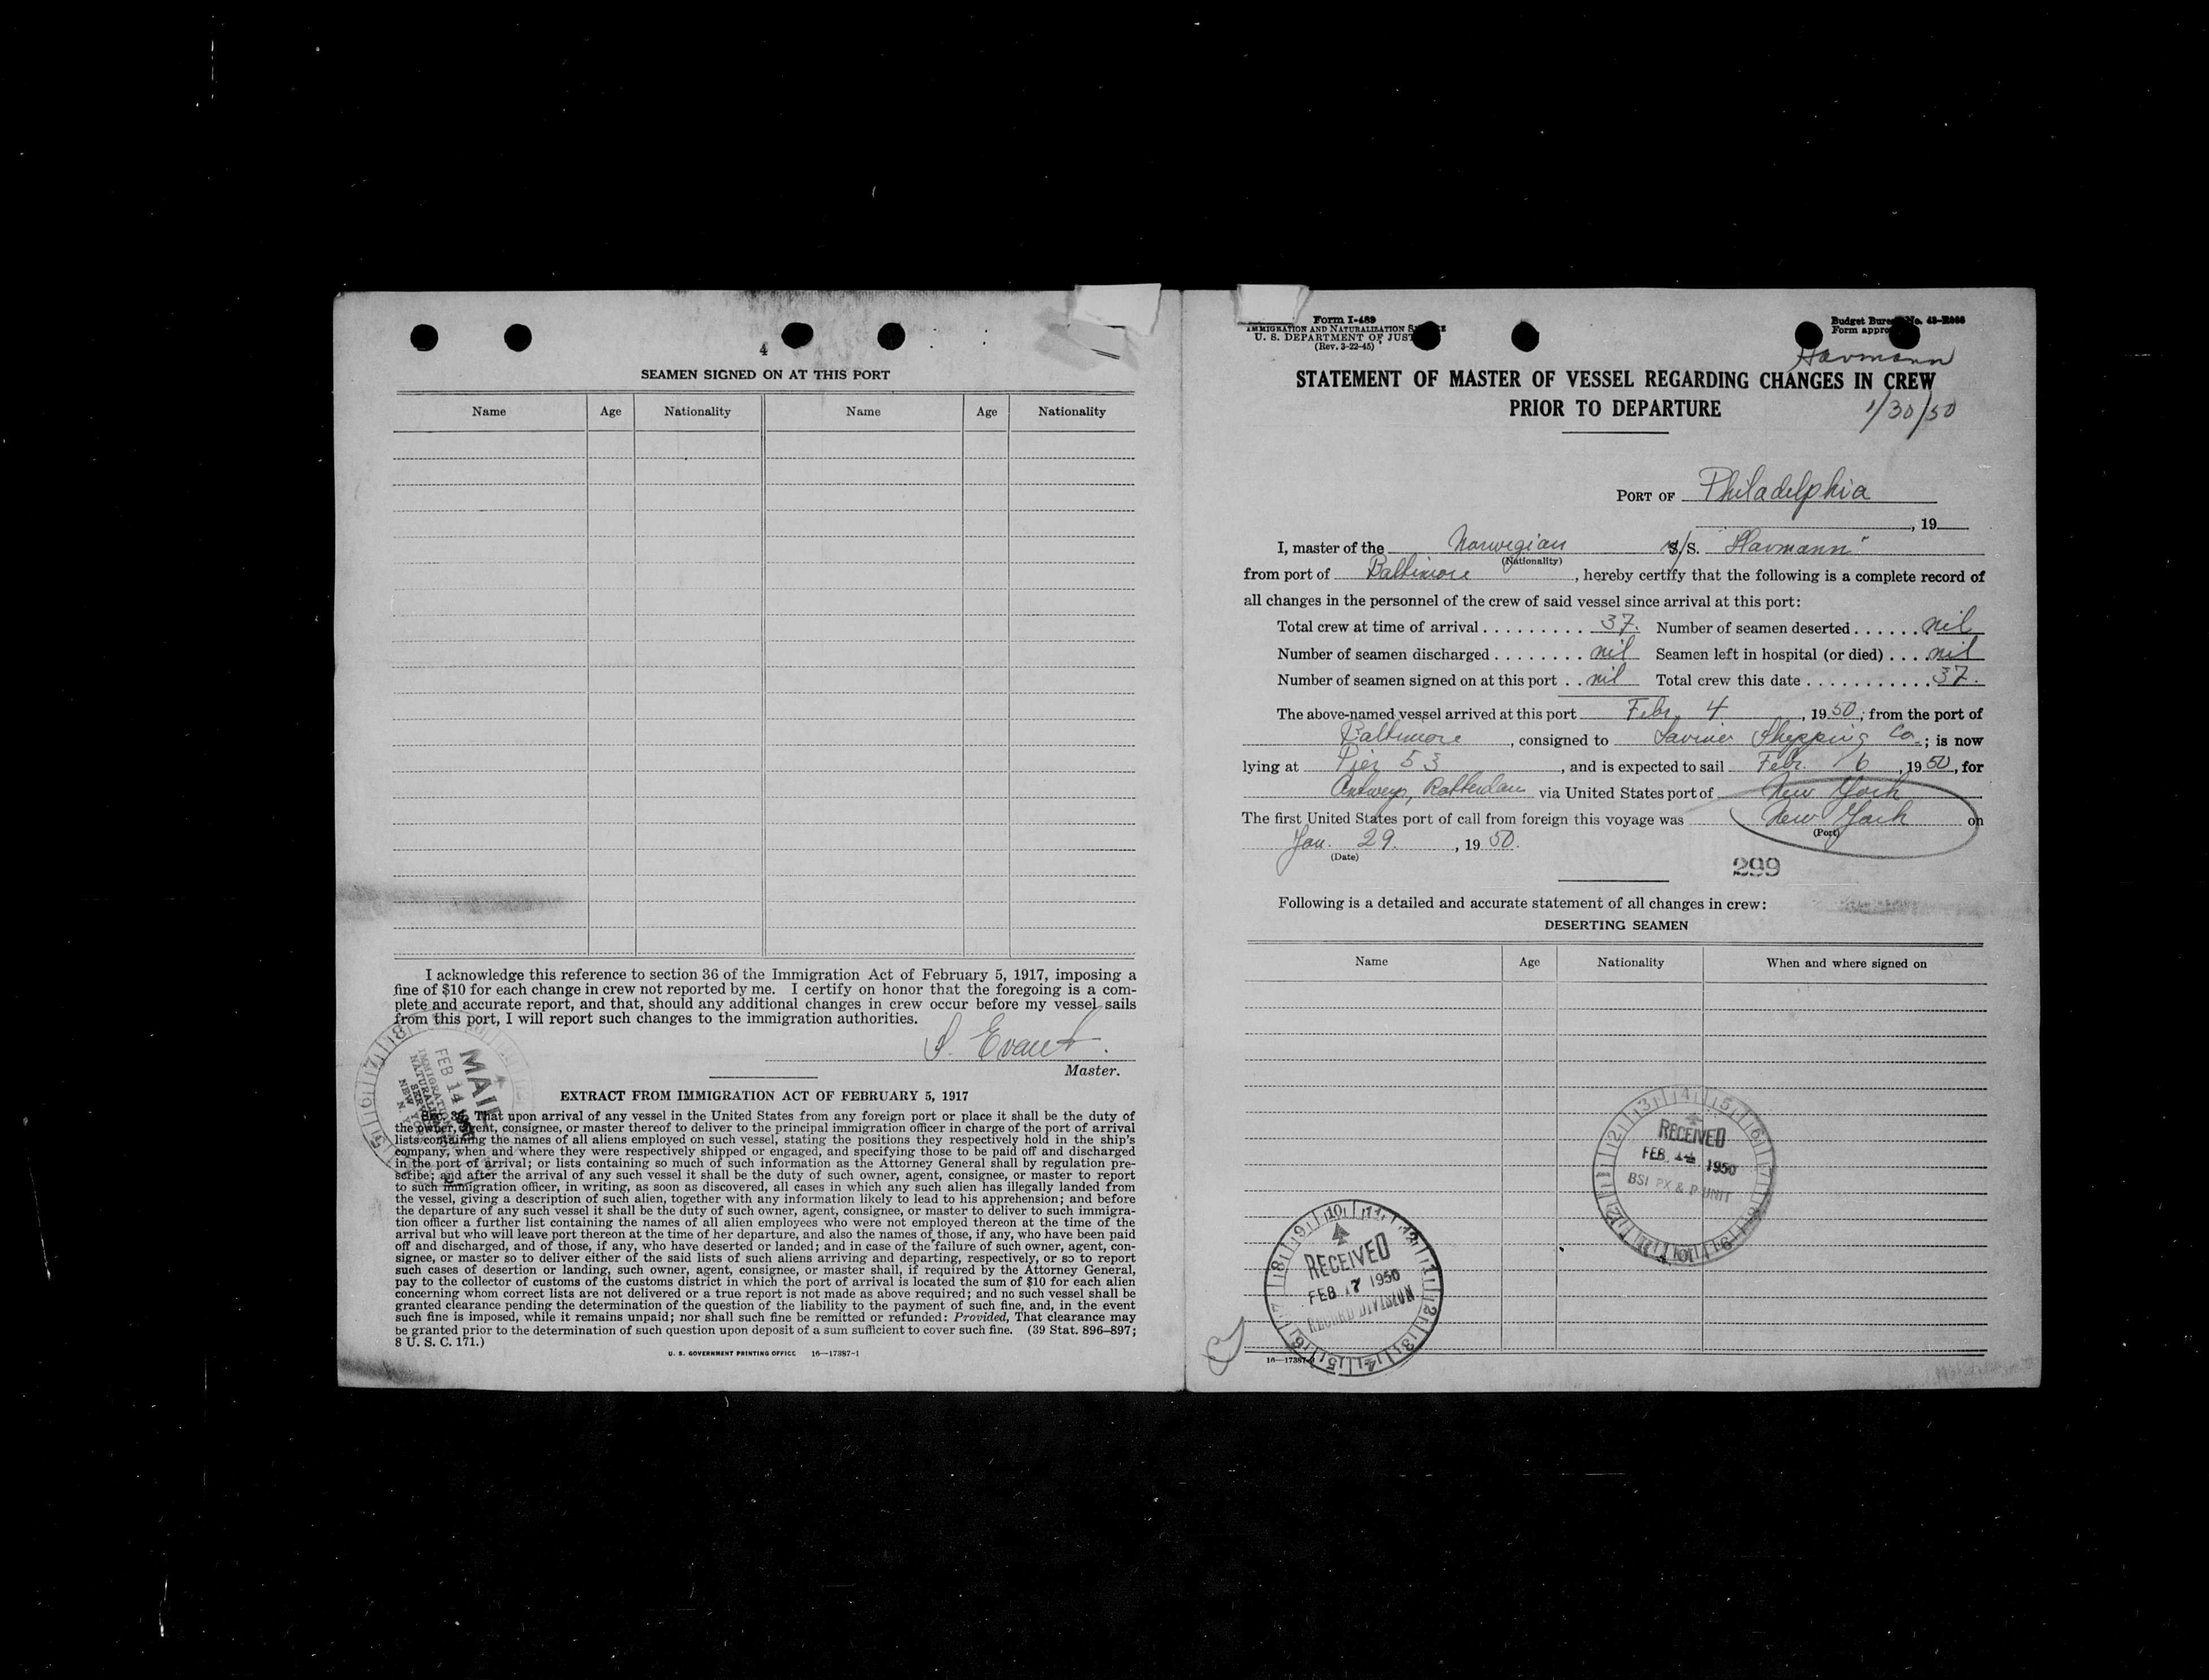 4
SEAMEN SIGNED ON AT THIS PORT
Name Age Nationality Name Age Nationality
I acknowledge this reference to section 36 of the Immigration Act of February 5, 1917, imposing a
fine of $10 for each change in crew not reported by me. I certify on honor that the foregoing is a com-
plete and accurate report, and that, should any additional changes in crew occur before my vessel sails
from this port, I will report such changes to the immigration authorities.
Master.
MAIL
FEB 14
EXTRACT FROM IMMIGRATION ACT OF FEBRUARY 5, 1917
Sec. 36. That upon arrival of any vessel in the United States from any foreign port or place it shall be the duty of
the owner, agent, consignee, or master thereof to deliver to the principal immigration officer in charge of the port of arrival
lists containing the names of all aliens employed on such vessel, stating the positions they respectively hold in the ship's
company, when and where they were respectively shipped or engaged, and specifying those to be paid off and discharged
in the port of arrival; or lists containing so much of such information as the Attorney General shall by regulation pre-
scribe; and after the arrival of any such vessel it shall be the duty of such owner, agent, consignee, or master to report
to such immigration officer, in writing, as soon as discovered, all cases in which any such alien has illegally landed from
the vessel, giving a description of such alien, together with any information likely to lead to his apprehension; and before
the departure of any such vessel it shall be the duty of such owner, agent, consignee, or master to deliver to such immigra-
tion officer a further list containing the names of all alien employees who were not employed thereon at the time of the
arrival but who will leave port thereon at the time of her departure, and also the names of those, if any, who have been paid
off and discharged, and of those, if any, who have deserted or landed; and in case of the failure of such owner, agent, con-
signee, or master so to deliver either of the said lists of such aliens arriving and departing, respectively, or so to report
such cases of desertion or landing, such owner, agent, consignee, or master shall, if required by the Attorney General,
pay to the collector of customs of the customs district in which the port of arrival is located the sum of $10 for each alien
concerning whom correct lists are not delivered or a true report is not made as above required; and no such vessel shall be
granted clearance pending the determination of the question of the liability to the payment of such fine, and, in the event
such fine is imposed, while it remains unpaid; nor shall such fine be remitted or refunded: Provided, That clearance may
be granted prior to the determination of such question upon deposit of a sum sufficient to cover such fine. (39 Stat. 896–897;
8 U. S. C. 171.)
U. S. GOVERNMENT PRINTING OFFICE 16—17387-1
Form I-489
IMMIGRATION AND NATURALIZATION
U. S. DEPARTMENT OF JUST
(Rev. 3-22-45)
Budget Bureau No.
Form appro
Havmann
STATEMENT OF MASTER OF VESSEL REGARDING CHANGES IN CREW
PRIOR TO DEPARTURE
1/30/50
PORT OF Philadelphia
, 19
I, master of the Norwegian M/S. "Havmann"
(Nationality)
from port of Baltimore, hereby certify that the following is a complete record of
all changes in the personnel of the crew of said vessel since arrival at this port:
Total crew at time of arrival 37. Number of seamen deserted nil
Number of seamen discharged nil Seamen left in hospital (or died) nil
Number of seamen signed on at this port nil Total crew this date 37.
The above-named vessel arrived at this port Febr. 4, 1950; from the port of
Baltimore, consigned to Shipping Co.; is now
lying at Pier 53, and is expected to sail Febr. 6, 1950, for
Antwerp, Rotterdam via United States port of New York
The first United States port of call from foreign this voyage was New York on
(Port)
Jan. 29., 1950.
(Date)
299
Following is a detailed and accurate statement of all changes in crew:
DESERTING SEAMEN
Name Age Nationality When and where signed on
RECEIVED
FEB 1950
BSI PX & P UNIT
RECEIVED
FEB 17 1950
RECORD DIVISION